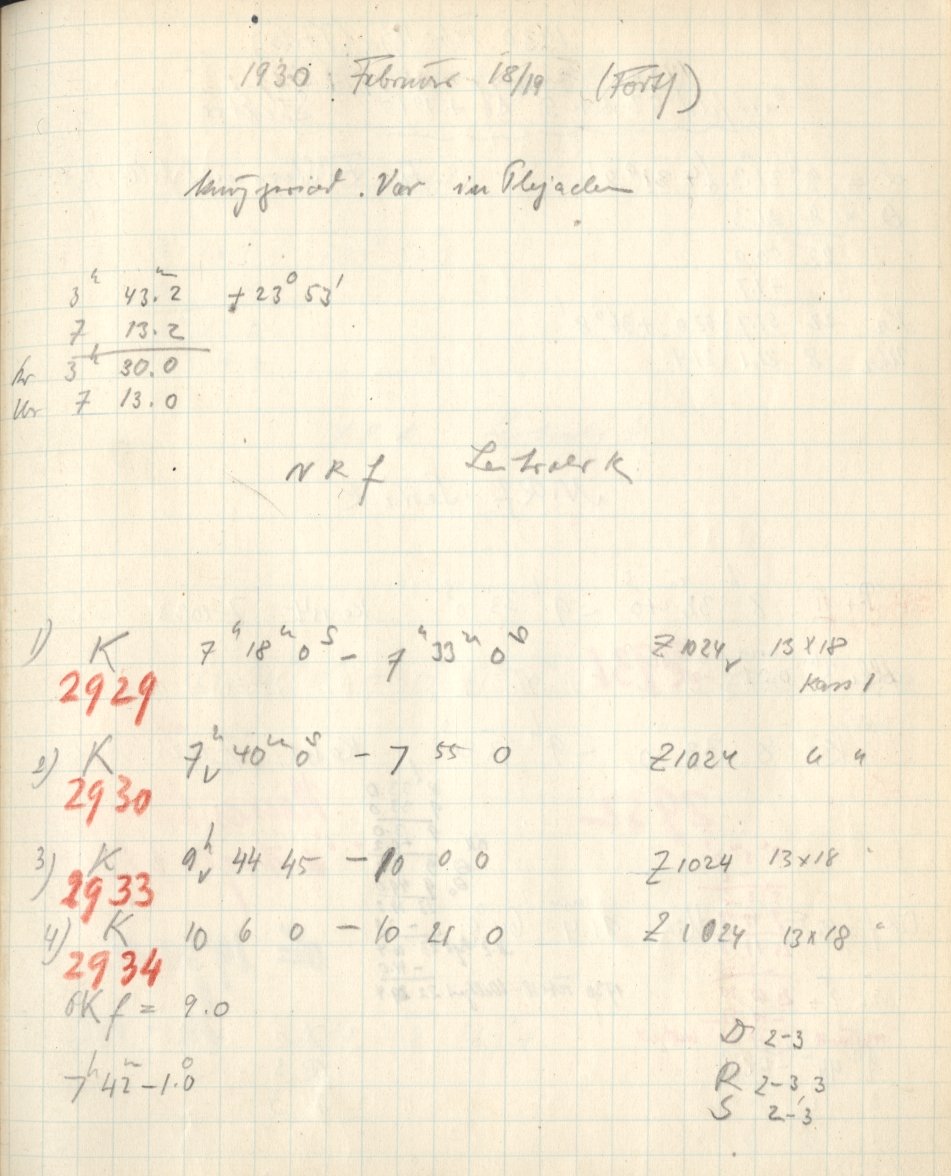 1930 Februar 18/19 (Forts)
kurzperiod. Var in Plejaden
3h 43.m2 +23° 53'
7 13.2
3h 30.0
7 13.0
N R f
1) K 7h 18m 0s - 7h 33m 0s Z1024 13x18
2929 Kass 1
2) K 7h 40m 0s - 7 55 0 Z1024 " "
2930
3) K 9h 44 45 - 10 0 0 Z1024 13x18 "
2933
4) K 10 6 0 - 10 21 0 Z1024 13x18 "
2934
f = 9.0
7h 42m -1.°0
D 2-3
R 2-3,3
S 2-3